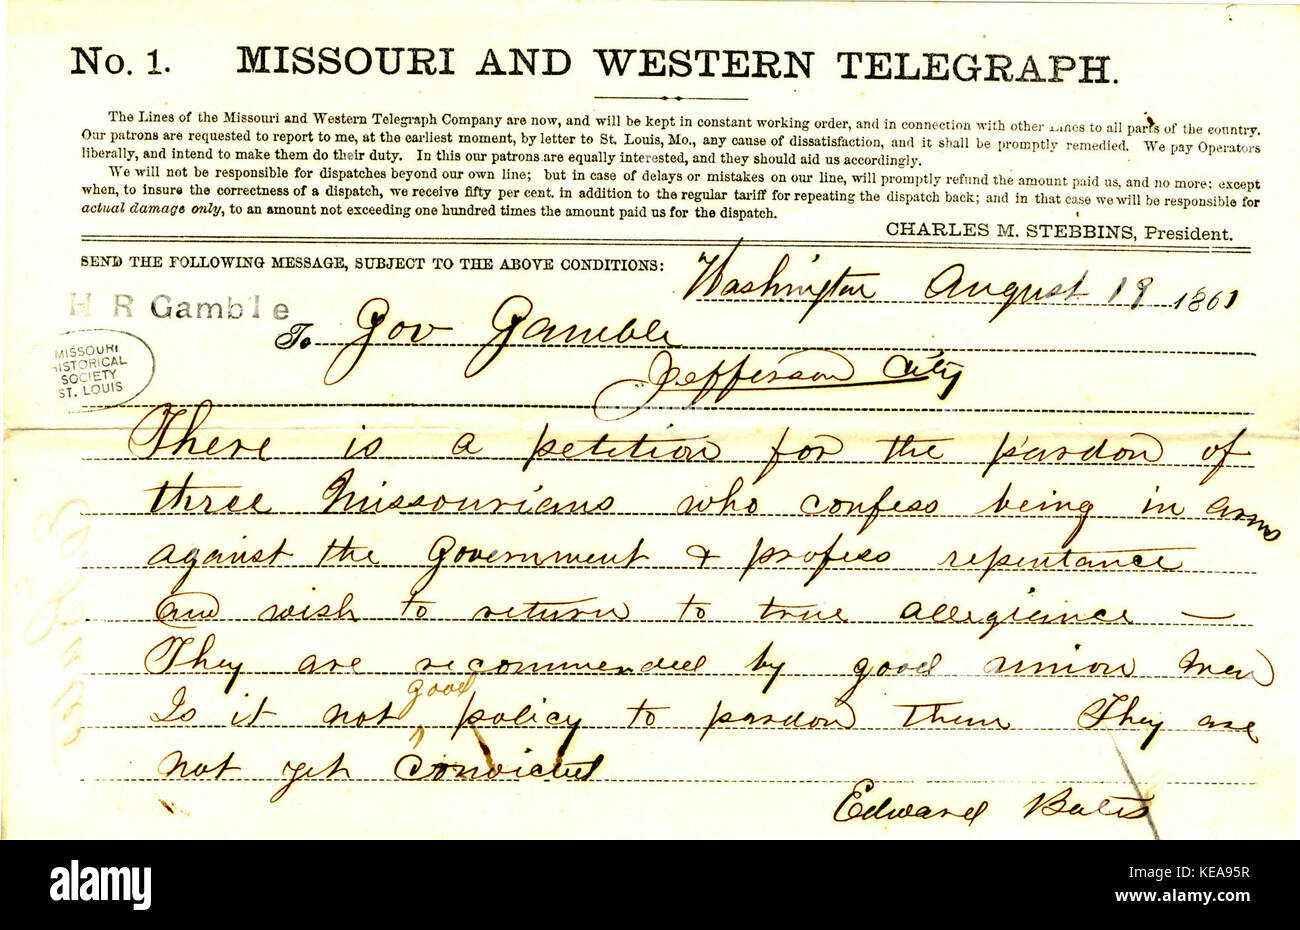 No. 1. MISSOURI AND WESTERN TELEGRAPH.
The Lines of the Missouri and Western Telegraph Company are now, and will be kept in constant working order, and in connection with other Lines to all parts of the country.
Our patrons are requested to report to me, at the earliest moment, by letter to St. Louis, Mo., any cause of dissatisfaction, and it shall be promptly remedied. We pay Operators
liberally, and intend to make them do their duty. In this our patrons are equally interested, and they should aid us accordingly.
We will not be responsible for dispatches beyond our own line; but in case of delays or mistakes on our line, will promptly refund the amount paid us, and no more: except
when, to insure the correctness of a dispatch, we receive fifty per cent. in addition to the regular tariff for repeating the dispatch back; and in that case we will be responsible for
actual damage only, to an amount not exceeding one hundred times the amount paid us for the dispatch.
CHARLES M. STEBBINS, President.
SEND THE FOLLOWING MESSAGE, SUBJECT TO THE ABOVE CONDITIONS:
Washington August 19 1861
H R Gamble
To Gov Gamble
Jefferson City
MISSOURI
HISTORICAL
SOCIETY
ST. LOUIS
There is a petition for the pardon of
three Missourians who confess being in arms
against the Government & profess repentance
and wish to return to true allegiance —
They are recommended by good union men
Is it not good policy to pardon them They are
not yet convicted
Edward Bates
alamy
Image ID: KEA95R
www.alamy.com